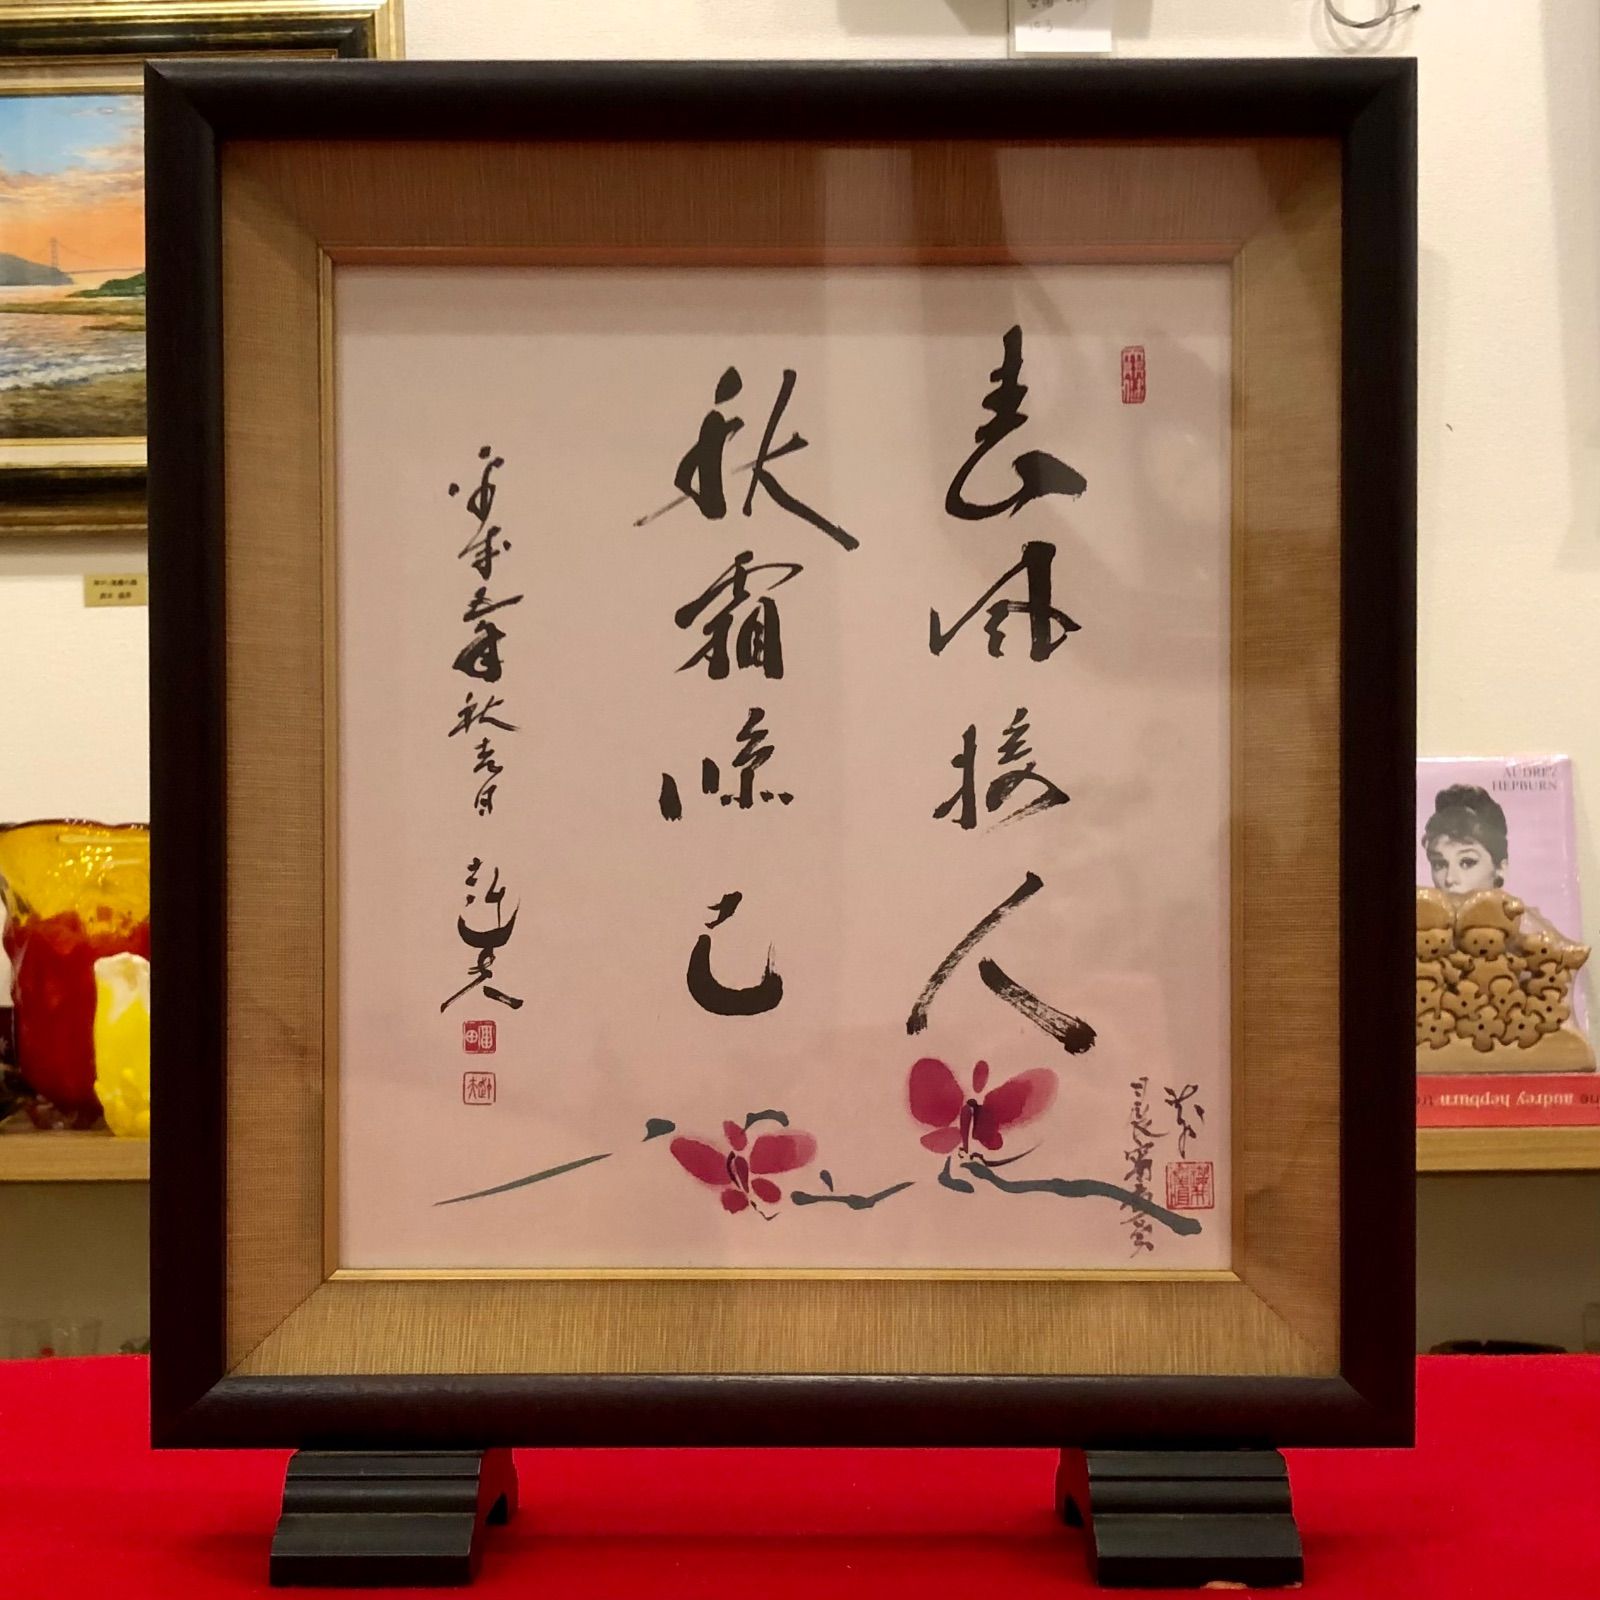 春風接人
秋霜凛己
平成五年秋吉日 赳夫
AUDREY
HEPBURN
audrey hepburn